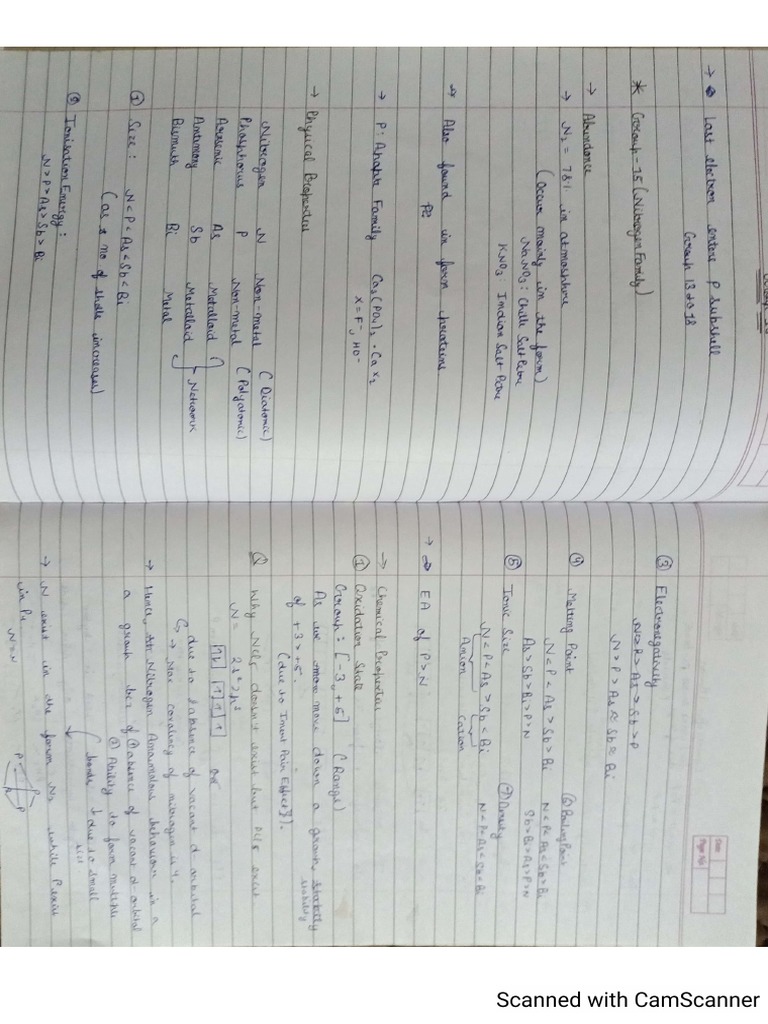 → Last electron enters P subshell
Group 13 to 18
* Group-15 (Nitrogen Family)
→ Abundance
→ N₂ = 78% in atmosphere
(Occur mainly in the form)
NaNO₃: Chile Salt Petre
KNO₃: Indian Salt Petre
→ Also found in form proteins
→ P: Family Ca₃(PO₄)₂ · CaX₂
X = F⁻, HO⁻
→ Physical Properties
Nitrogen N Non-metal (Diatomic)
Phosphorus P Non-metal (Polyatomic)
Arsenic As Metalloid
Antimony Sb Metalloid → Network
Bismuth Bi Metal
① Size : N < P < As < Sb < Bi
(as no of shells increases)
② Ionisation Energy:
N > P > As > Sb > Bi
Date
Page No.
③ Electronegativity
N > P > As ≈ Sb ≈ Bi
④ Melting Point ⑥ Boiling Point
N < P < As > Sb > Bi N < P < As < Sb > Bi
As > Sb > Bi > P > N Sb > Bi > As > P > N
⑤ Ionic Size ⑦ Density
N < P < As > Sb < Bi N < P < As < Sb < Bi
Anion Cation
→ EA of P > N
→ Chemical Properties
① Oxidation State
Group = [-3, +5] (Range)
As we move down a group, stability
stability
of +3 > +5.
(due to Inert Pair Effect).
Q Why NCl₅ doesn't exist but PCl₅ exist
N = 2s² 2p³
due to absence of vacant d orbital
↳ → Max covalency of nitrogen is 4.
→ Hence, Nitrogen Anamalous behaviour in a
a group bcz of ① absence of vacant d-orbital
② Ability to form multiple
bonds due to small
size
→ N exist in the form N₂ while P exist
in P₄ N≡N
P
P
P